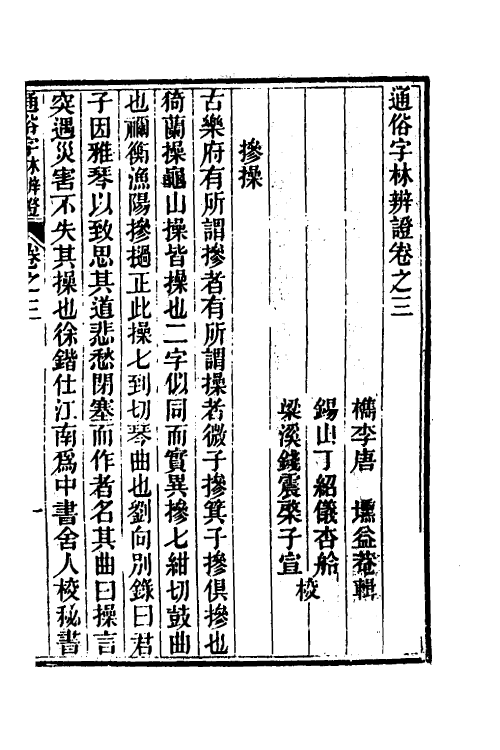 通俗字林辨證卷之三
檇李唐　壎益菴輯
錫山丁紹儀杏舲
梁溪錢震榮子宣
校
摻操
古樂府有所謂摻者有所謂操者微子摻箕子摻俱摻也
猗蘭操龜山操皆操也二字似同而實異摻七紺切鼓曲
也禰衡漁陽摻撾正此操七到切琴曲也劉向別錄曰君
子因雅琴以致思其道悲愁閉塞而作者名其曲曰操言
突遇災害不失其操也徐鍇仕江南爲中書舍人校秘書
通俗字林辨證
卷之三
一